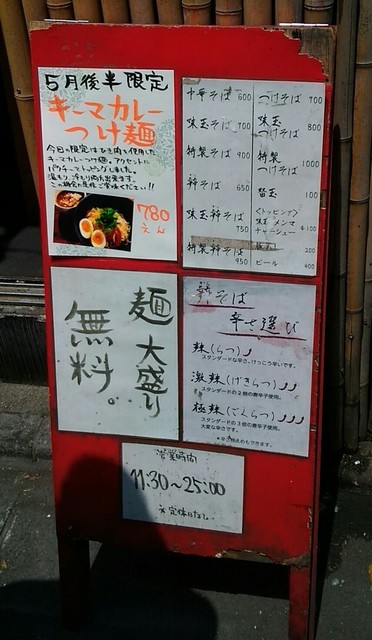 5月後半限定
キーマカレー
つけ麺
今回の限定はひき肉を使用した
キーマカレーつけ麺。アクセントに
パクチーをトッピングしました。
温もり、冷もり両方出来ます。
780
えん
中華そば 600
味玉そば 700
特製そば 900
辣そば 650
味玉辣そば
750
特製辣そば
950
つけそば 700
味玉
つけそば 800
特製
つけそば 1000
替玉 100
<トッピング>
味玉 メンマ
チャーシュー 各100
200
ビール 400
麺大盛り
無料。
辣そば
辛さ選び
辣(らつ)
スタンダードな辛さ。けっこう辛いです。
激辣(げきらつ)
スタンダードの2倍の唐辛子使用。
極辣(ごくらつ)
スタンダードの3倍の唐辛子使用。
大変な辛さです。
営業時間
11:30~25:00
※定休日なし